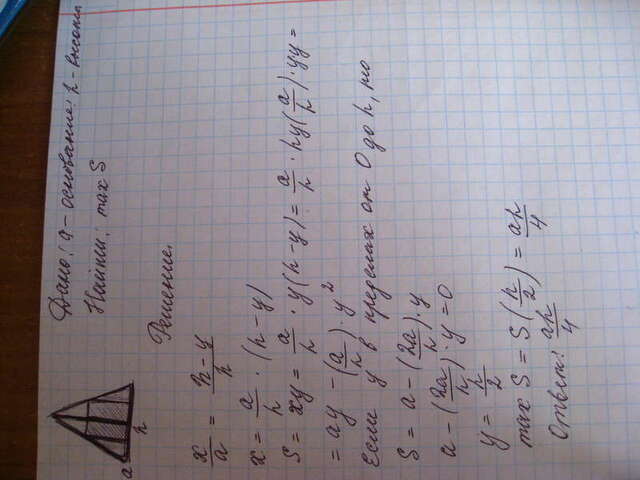 Дано: a - основание; h - высота
Найти: max S
Решение.
a
h
x/a = h-y/h
x = a/h · (h-y)
S = xy = a/h · y(h-y) = a/h · hy(a/h) · yy =
= ay - (a/h) · y²
Если y в пределах от 0 до h, то
S = a - (2a/h) · y
a - (2a/h) · y = 0
y = h/2
max S = S (h/2) = ah/4
Ответ: ah/4